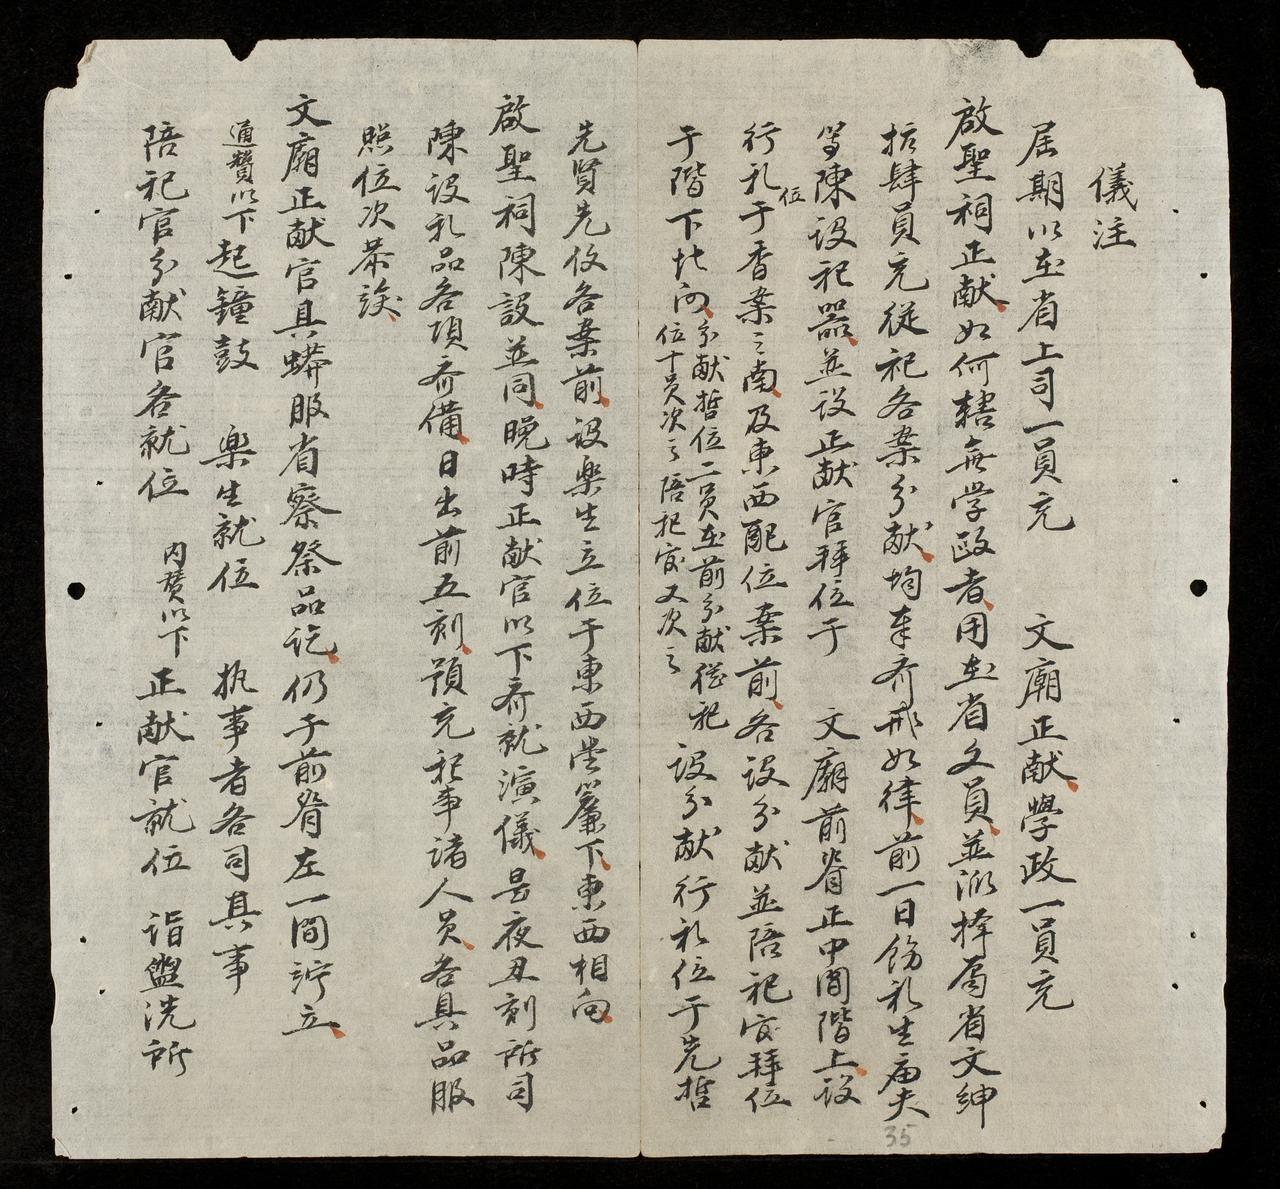 儀注
屆期以在省上司一員充　文廟正献學政一員充
啟聖祠正献如何轄無学政者用在省文員並派擇居省文紳
拾肆員充從祀各案分献均奉齊戒如律前一日飭礼生庙夫
等陳設祀器並设正献官拜位于　文廟前脊正中間階上设
行礼位于香案之南及東西配位案前各设分献並陪祀官拜位
于階下北向分献哲位二員在前分献從祀位十員次之陪祀官又次之设分献行礼位于先哲
先賢先儒各案前设楽生立位于東西堂簾下東西相向
啟聖祠陳設並同晚時正献官以下齊就演儀是夜丑刻所司
陳设礼品各項齊備日出前五刻預充祀事諸人員各具品服
照位次恭竢
文廟正献官具蟒服省察祭品訖仍于前脊左一間竚立
通贊以下起鐘鼓　楽生就位　执事者各司其事
陪祀官分献官各就位　内賛以下正献官就位　詣盥洗所
35